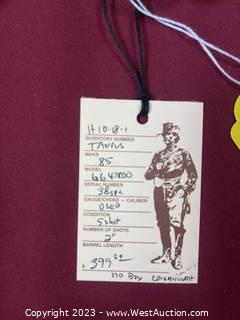 H10-18-1
INVENTORY NUMBER
TAURUS
MAKE
85
MODEL
GG47800
SERIAL NUMBER
38SPL
GAUGE/CHOKE – CALIBER
USED
CONDITION
5 shot
NUMBER OF SHOTS
2"
BARREL LENGTH
$399
no Box consignment
Copyright © 2023 - www.BarNoneAuction.com